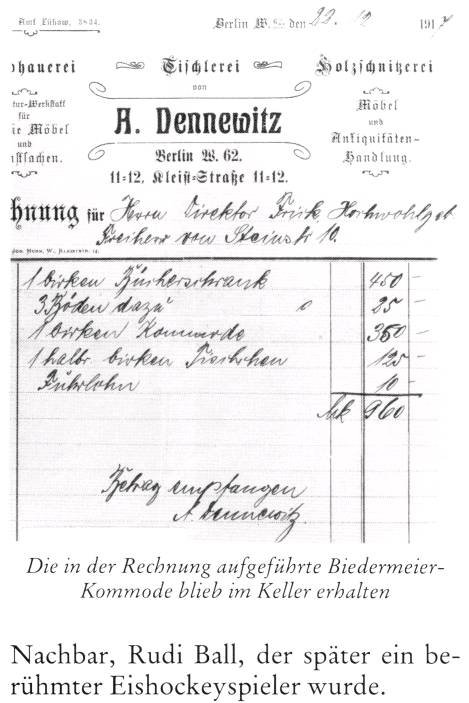 Amt Lützow, 3834. Berlin W. 62 den 22. 12 1917
hauerei Tischlerei Holzschnitzerei
von
tur-Werkstatt
für
ie Möbel
und
nstsachen.
A. Dennewitz
Möbel
und
Antiquitäten-
Handlung.
Berlin W. 62.
11-12, Kleist-Straße 11-12.
hnung für Herrn Direktor Frick, Hochwohlgeb
Freiherr von Steinstr 10.
1 birken Bücherschrank 450 –
3 Böden dazu 25 –
1 birken Kommode 350 –
1 halbr. birken Tischchen 125 –
Fuhrlohn 10 –
Mk 960
Betrag empfangen
A. Dennewitz.
Die in der Rechnung aufgeführte Biedermeier-
Kommode blieb im Keller erhalten
Nachbar, Rudi Ball, der später ein be-
rühmter Eishockeyspieler wurde.